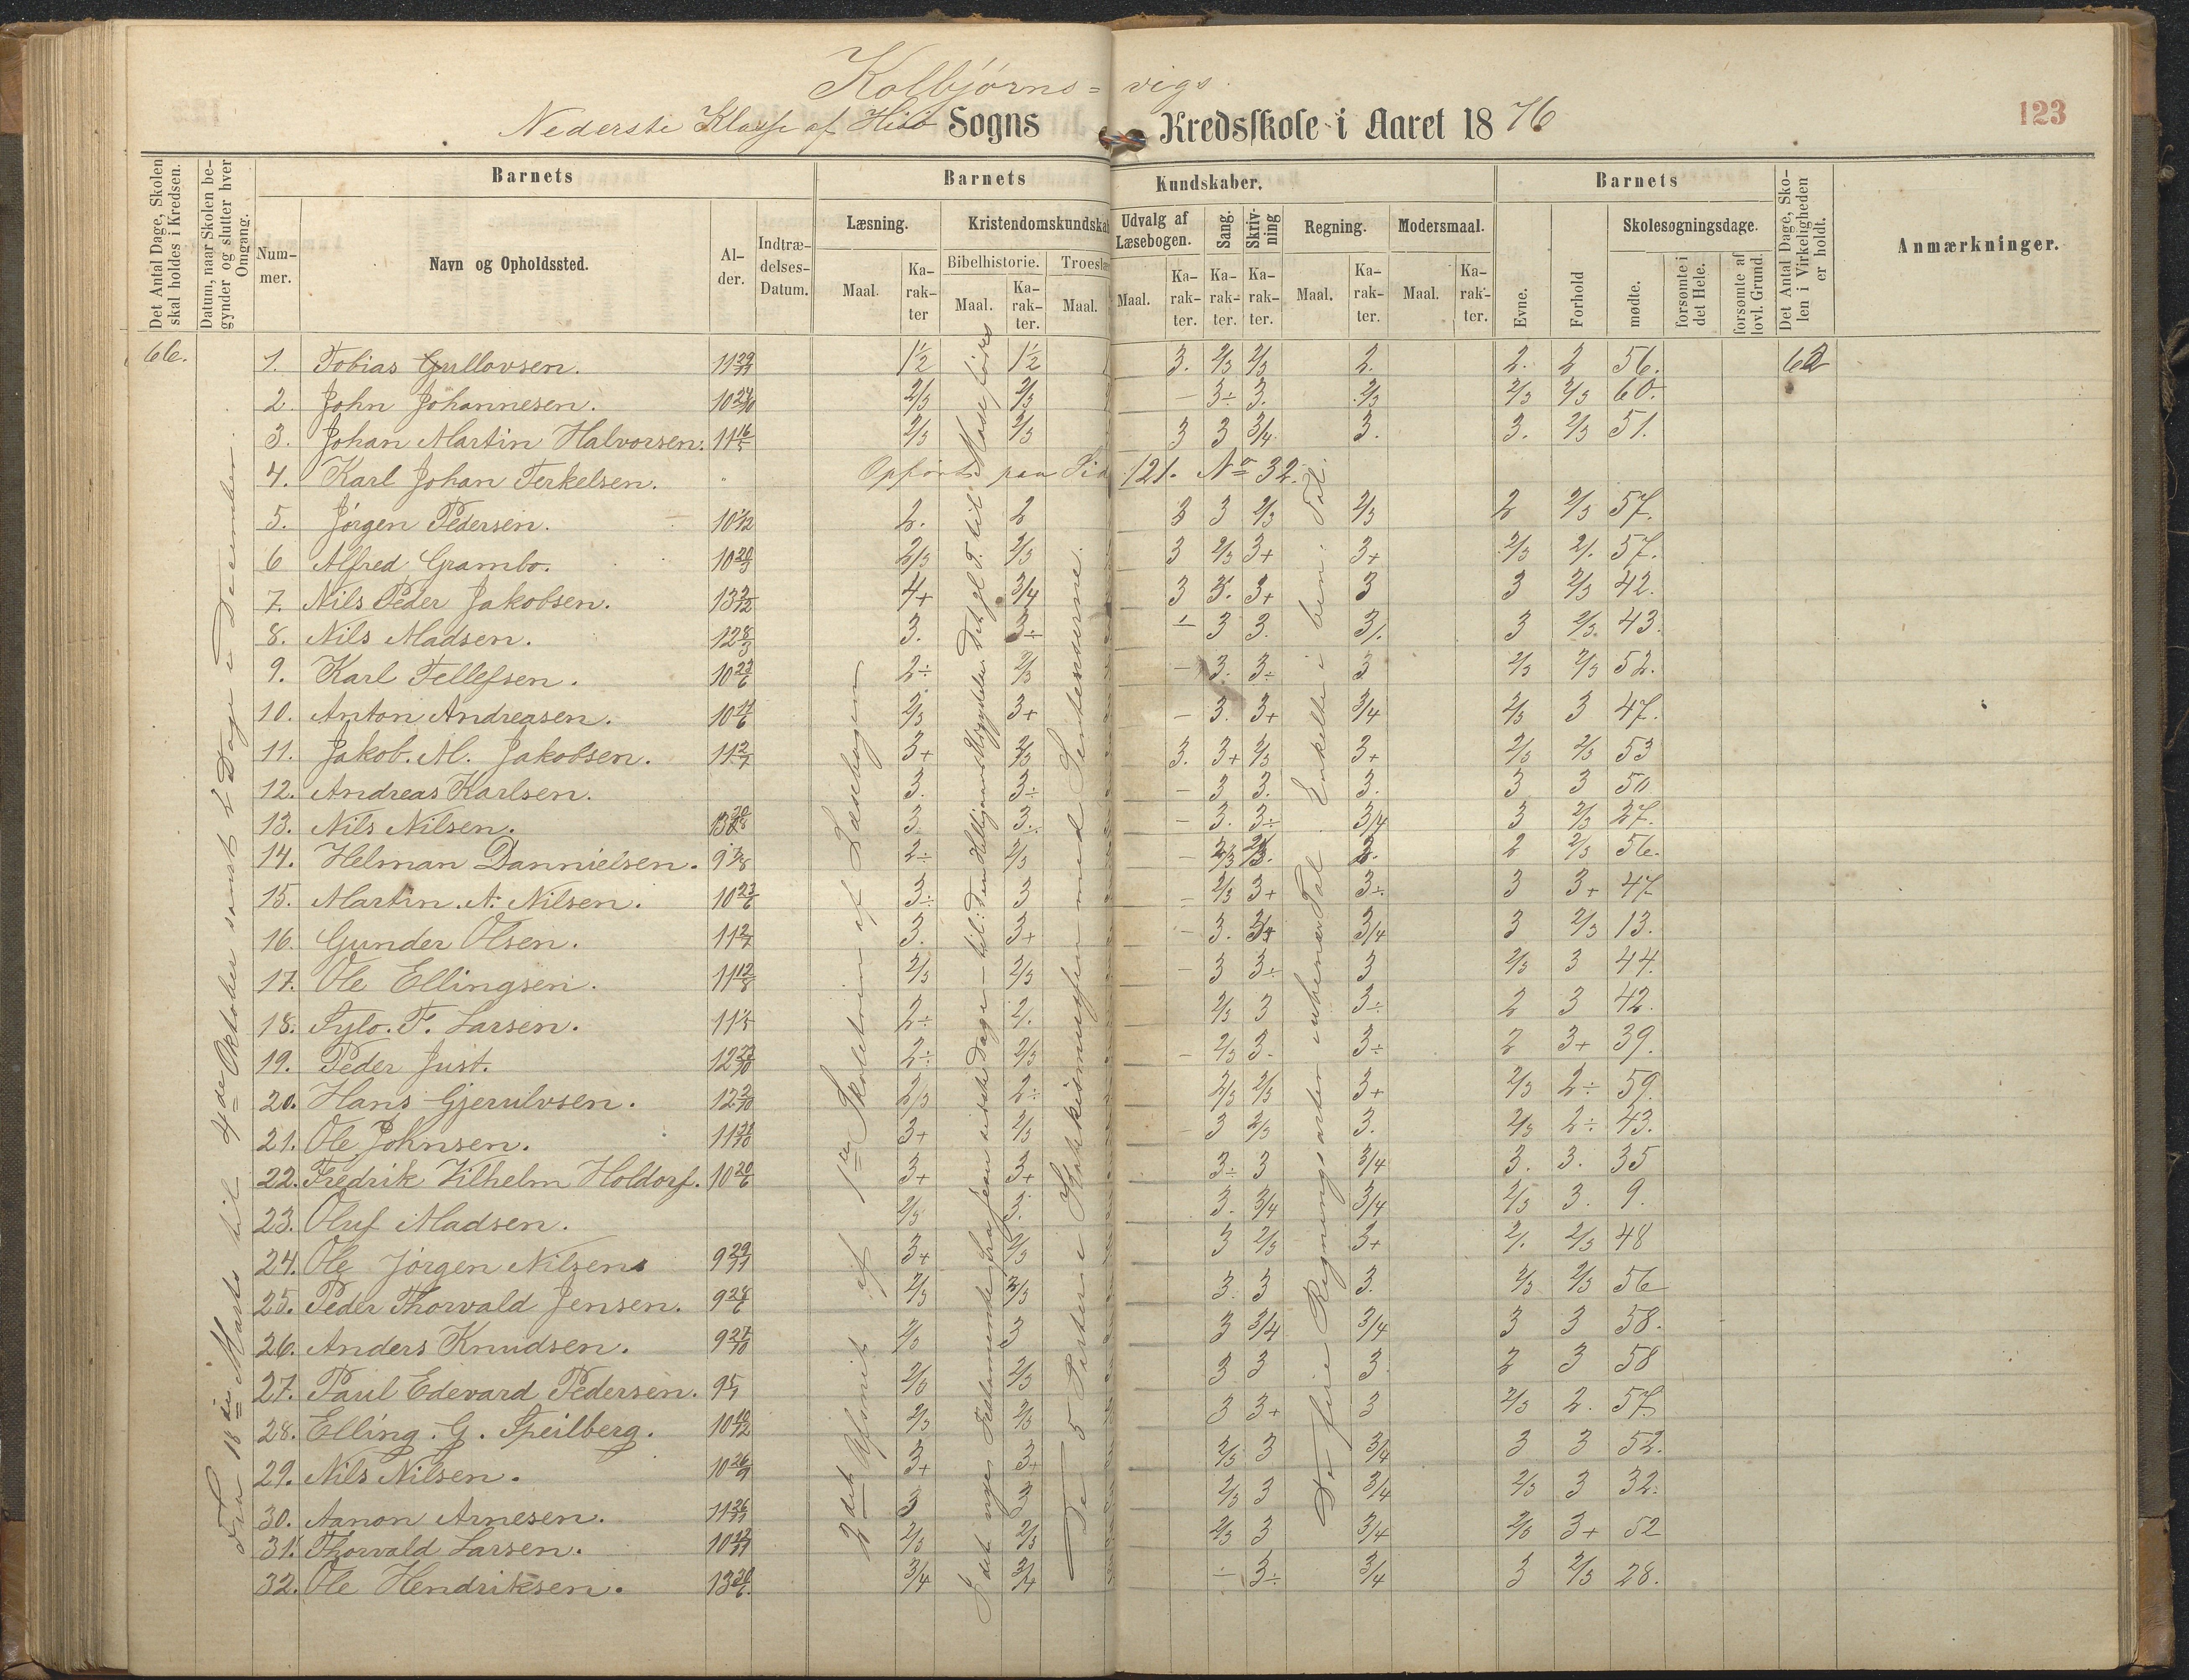 Kolbjørns= vigs
Nederste Klasse af Hisø Sogns Kredsskole i Aaret 1876.
123
Det Antal Dage, Skolen skal holdes i Kredsen.
Datum, naar Skolen begynder og slutter hver Omgang.
Barnets
Barnets Kundskaber.
Barnets
Det Antal Dage, Skolen i Virkeligheden er holdt.
Anmærkninger.
Nummer.
Navn og Opholdssted.
Alder.
Indtrædelses-Datum.
Læsning.
Kristendomskundskab
Udvalg af Læsebogen.
Sang.
Skrivning
Regning.
Modersmaal.
Evne.
Forhold
Skolesøgningsdage.
Bibelhistorie.
Troeslære
Maal.
Karakter
Maal.
Karakter.
Maal.
Maal.
Karakter.
Karakter.
Karakter.
Maal.
Karakter.
Maal.
Karakter.
mødte.
forsømte i det Hele.
forsømte af lovl. Grund.
66.
Fra 18de Marts til 4de Oktober samt 2 Dage i December.
2det Afsnit af 1ste Skoletrin af Læsebogen
De 5 Parter i Katekismusen med Sentenserne.
De fire Regningsarter i ubenævnt Tal. Enkelte i ben. Tal.
1. Tobias Gullovsen. 11 29/11 1½ 1½ 3. 2/3 2/3 2. 2. 2 56. 62
2. John Johannesen. 10 24/10 2/3 2/3 – 3÷ 3. 2/3 2/3 2/3 60.
3. Johan Martin Halvorsen. 11 16/5 2/3 2/3 3 3 3/4 3. 3. 2/3 51.
4. Karl Johan Terkelsen. Opført paa Sid 121. No 32.
5. Jørgen Pedersen. 10 1/12 2. 2 3 3 2/3 2/3 2 2/3 57.
6 Alfred Grambo. 10 20/3 2/3 2/3 3 2/3 3+ 3+ 2/3 2/. 57.
7. Nils Peder Jakobsen. 13 3/12 4+ 3/4 3 3. 3+ 3 3 2/3 42.
8. Nils Madsen. 12 8/3 3. 3÷ ÷ 3 3. 3/. 3 2/3 43.
9. Karl Tellefsen. 10 27/6 2÷ 2/3 – 3. 3÷ 3 2/3 2/3 52.
10. Anton Andreasen. 10 17/6 2/3 3+ – 3. 3+ 3/4 2/3 3 47.
11. Jakob. M. Jakobsen. 11 2/7 3+ 2/3 3. 3+ 2/3 3+ 2/3 2/3 53
12. Andreas Karlsen. 3. 3÷ – 3 3. 3. 3 3 50
13. Nils Nilsen. 3 3. – 3. 3÷ 3/4 3 2/3 27.
14. Helman Dannielsen. 9 7/8 2÷ 2/3 – 2/3 2 2/3 56.
15. Martin. N. Nilsen. 10 23/6 3÷ 3 – 2/3 3+ 3÷ 3 3+ 47
16. Gunder Olsen. 11 2/7 3. 3+ – 3. 3/4 3/4 3 2/3 13.
17. Ole Ellingsen. 11 12/8 2/3 2/3 – 3 3÷ 3 2/3 3 44.
18. Sylo. F. Larsen. 11 1/5 2÷ 2/. 2/3 3 3÷ 2 3 42.
19. Peder Just. 12 23/10 2÷ 2/3 – 2/3 3. 3÷ 2 3+ 39.
20. Hans Gjerulvsen. 12 3/10 2/3 2÷ 2/3 2/3 3+ 2/3 2÷ 59.
21. Ole Johnsen. 11 21/10 3+ 2/3 3 2/3 3. 2/3 2÷ 43.
22. Fredrik Vilhelm Holdorf. 10 20/6 3+ 3+ 3÷ 3 3/4 3. 3. 35
23. Oluf Madsen. 2/3 3. 3. 3/4 3/4 2/3 3. 9.
24. Ole Jørgen Nilsen 9 29/11 3+ 2/3 3 2/3 3+ 2/. 2/3 48
25. Peder Thorvald Jensen. 9 28/6 2/3 2/3 3. 3 3. 2/3 2/3 56
26. Anders Knudsen. 9 27/10 2/3 3 3 3/4 3/4 3 3 58.
27. Paul Edevard Pedersen. 9 5/1 2/3 2/3 3 3 3. 2 3 58
28. Elling. G. Speilberg. 10 10/12 2/3 2/3 3 3+ 3 2/3 2. 57.
29. Nils Nilsen. 10 26/9 3+ 3+ 2/3 3 3/4 3 3 52.
30. Aanon Arnesen. 11 26/11 3 3 2/3 3 3/4 2/3 3 32.
31. Thorvald Larsen. 10 2/3 2/3 2/3 3 3/4 2/3 3+ 52
32. Ole Hendriksen. 13 20/6 3/4 3/4 ÷ 3÷ 3/4 3 2/3 28.